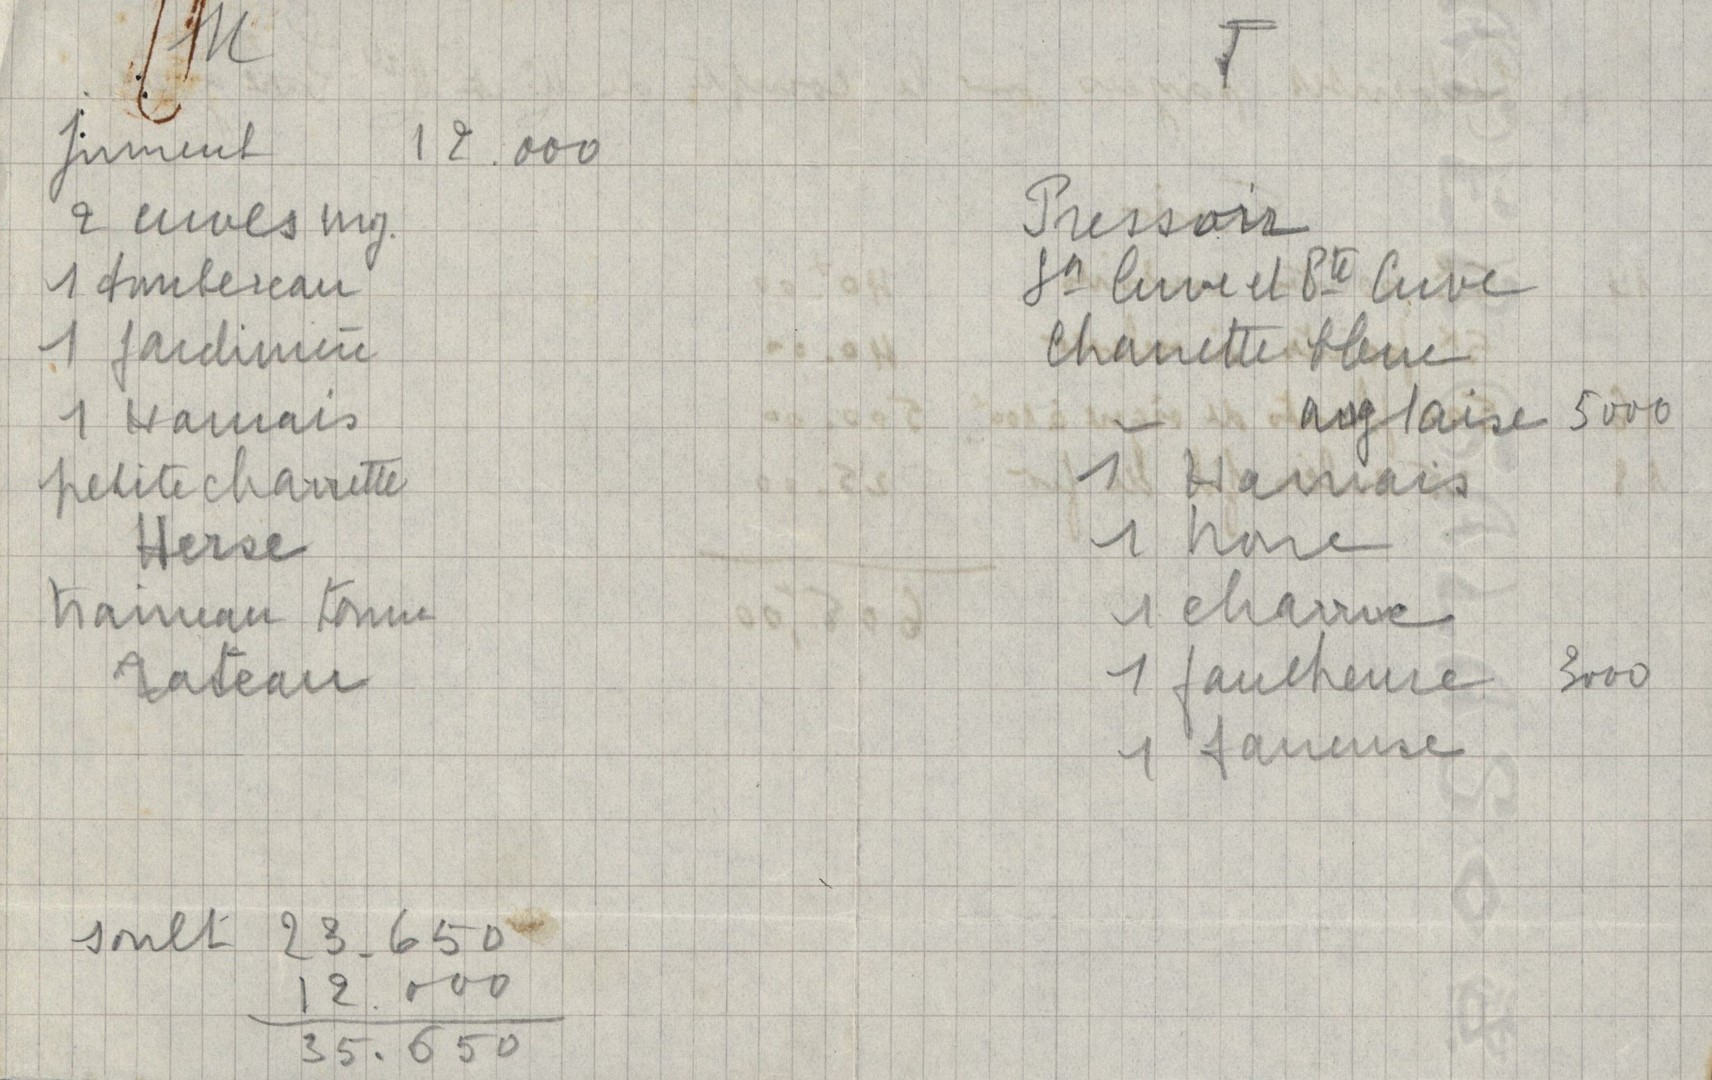 M
jument 12.000
2 cuves mg.
1 tombereau
1 Jardinière
1 Harnais
petite charrette
Herse
traineau
rateau
soult 23.650
12.000
35.650
T
Pressoir
Gde Cuve et Pte Cuve
Charrette bleue
anglaise 5000
1 Harnais
1 
1 charrue
1 faucheuse 3000
1 faneuse